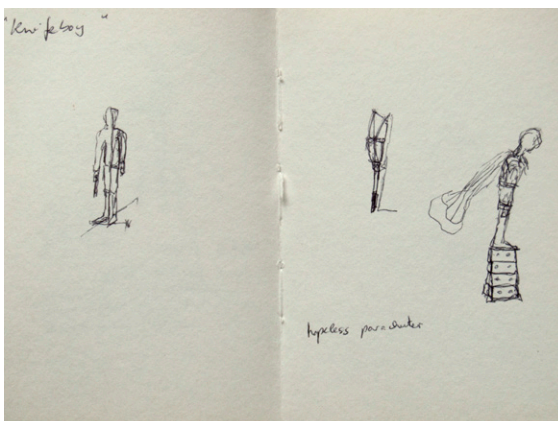 "Knifeboy"
hopeless parachuter